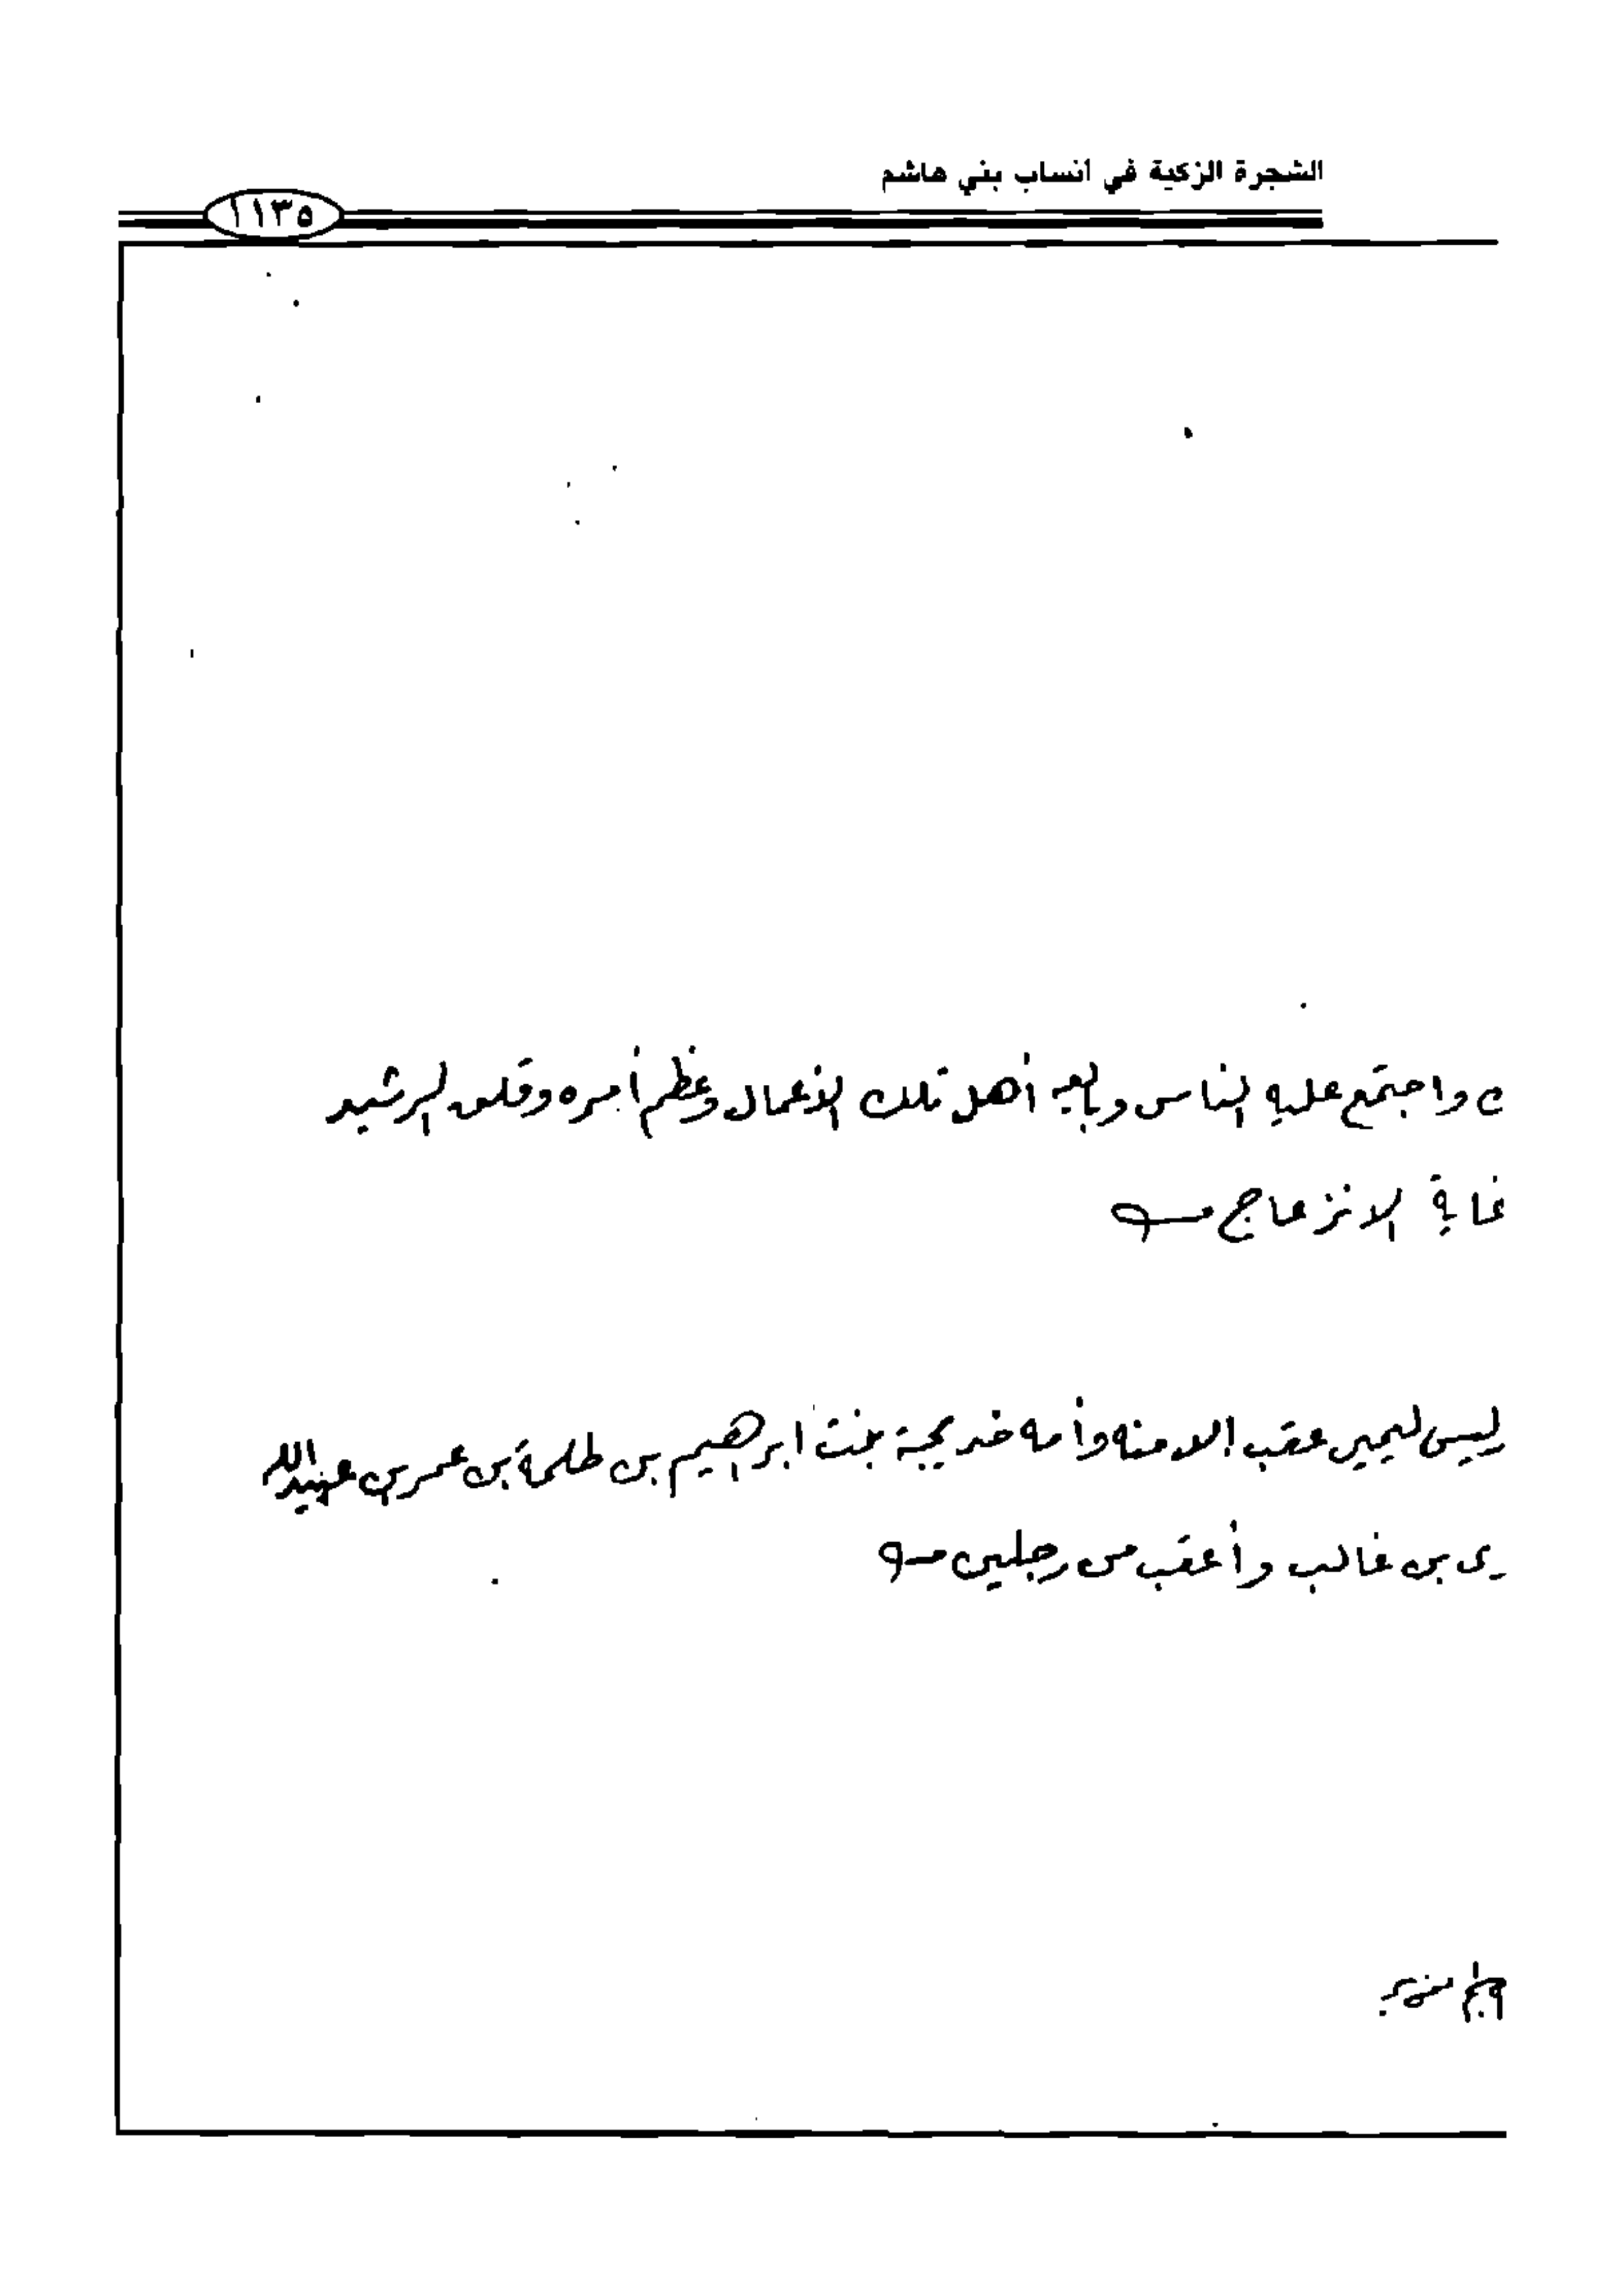 الشجرة الزكية في انساب بني هاشم
١١٣٥
واجتمع عليه الناس وبايعه أهل تلك الأعمال وعظم أمره وقلق الرشيد
غاية الانزعاج
ليس ليحيى عقب إلا منه وأمه خديجة بنت ابرهيم بن طلحة بن عمر بن عبيد الله
ى بن غالب وأعقب من رجلين